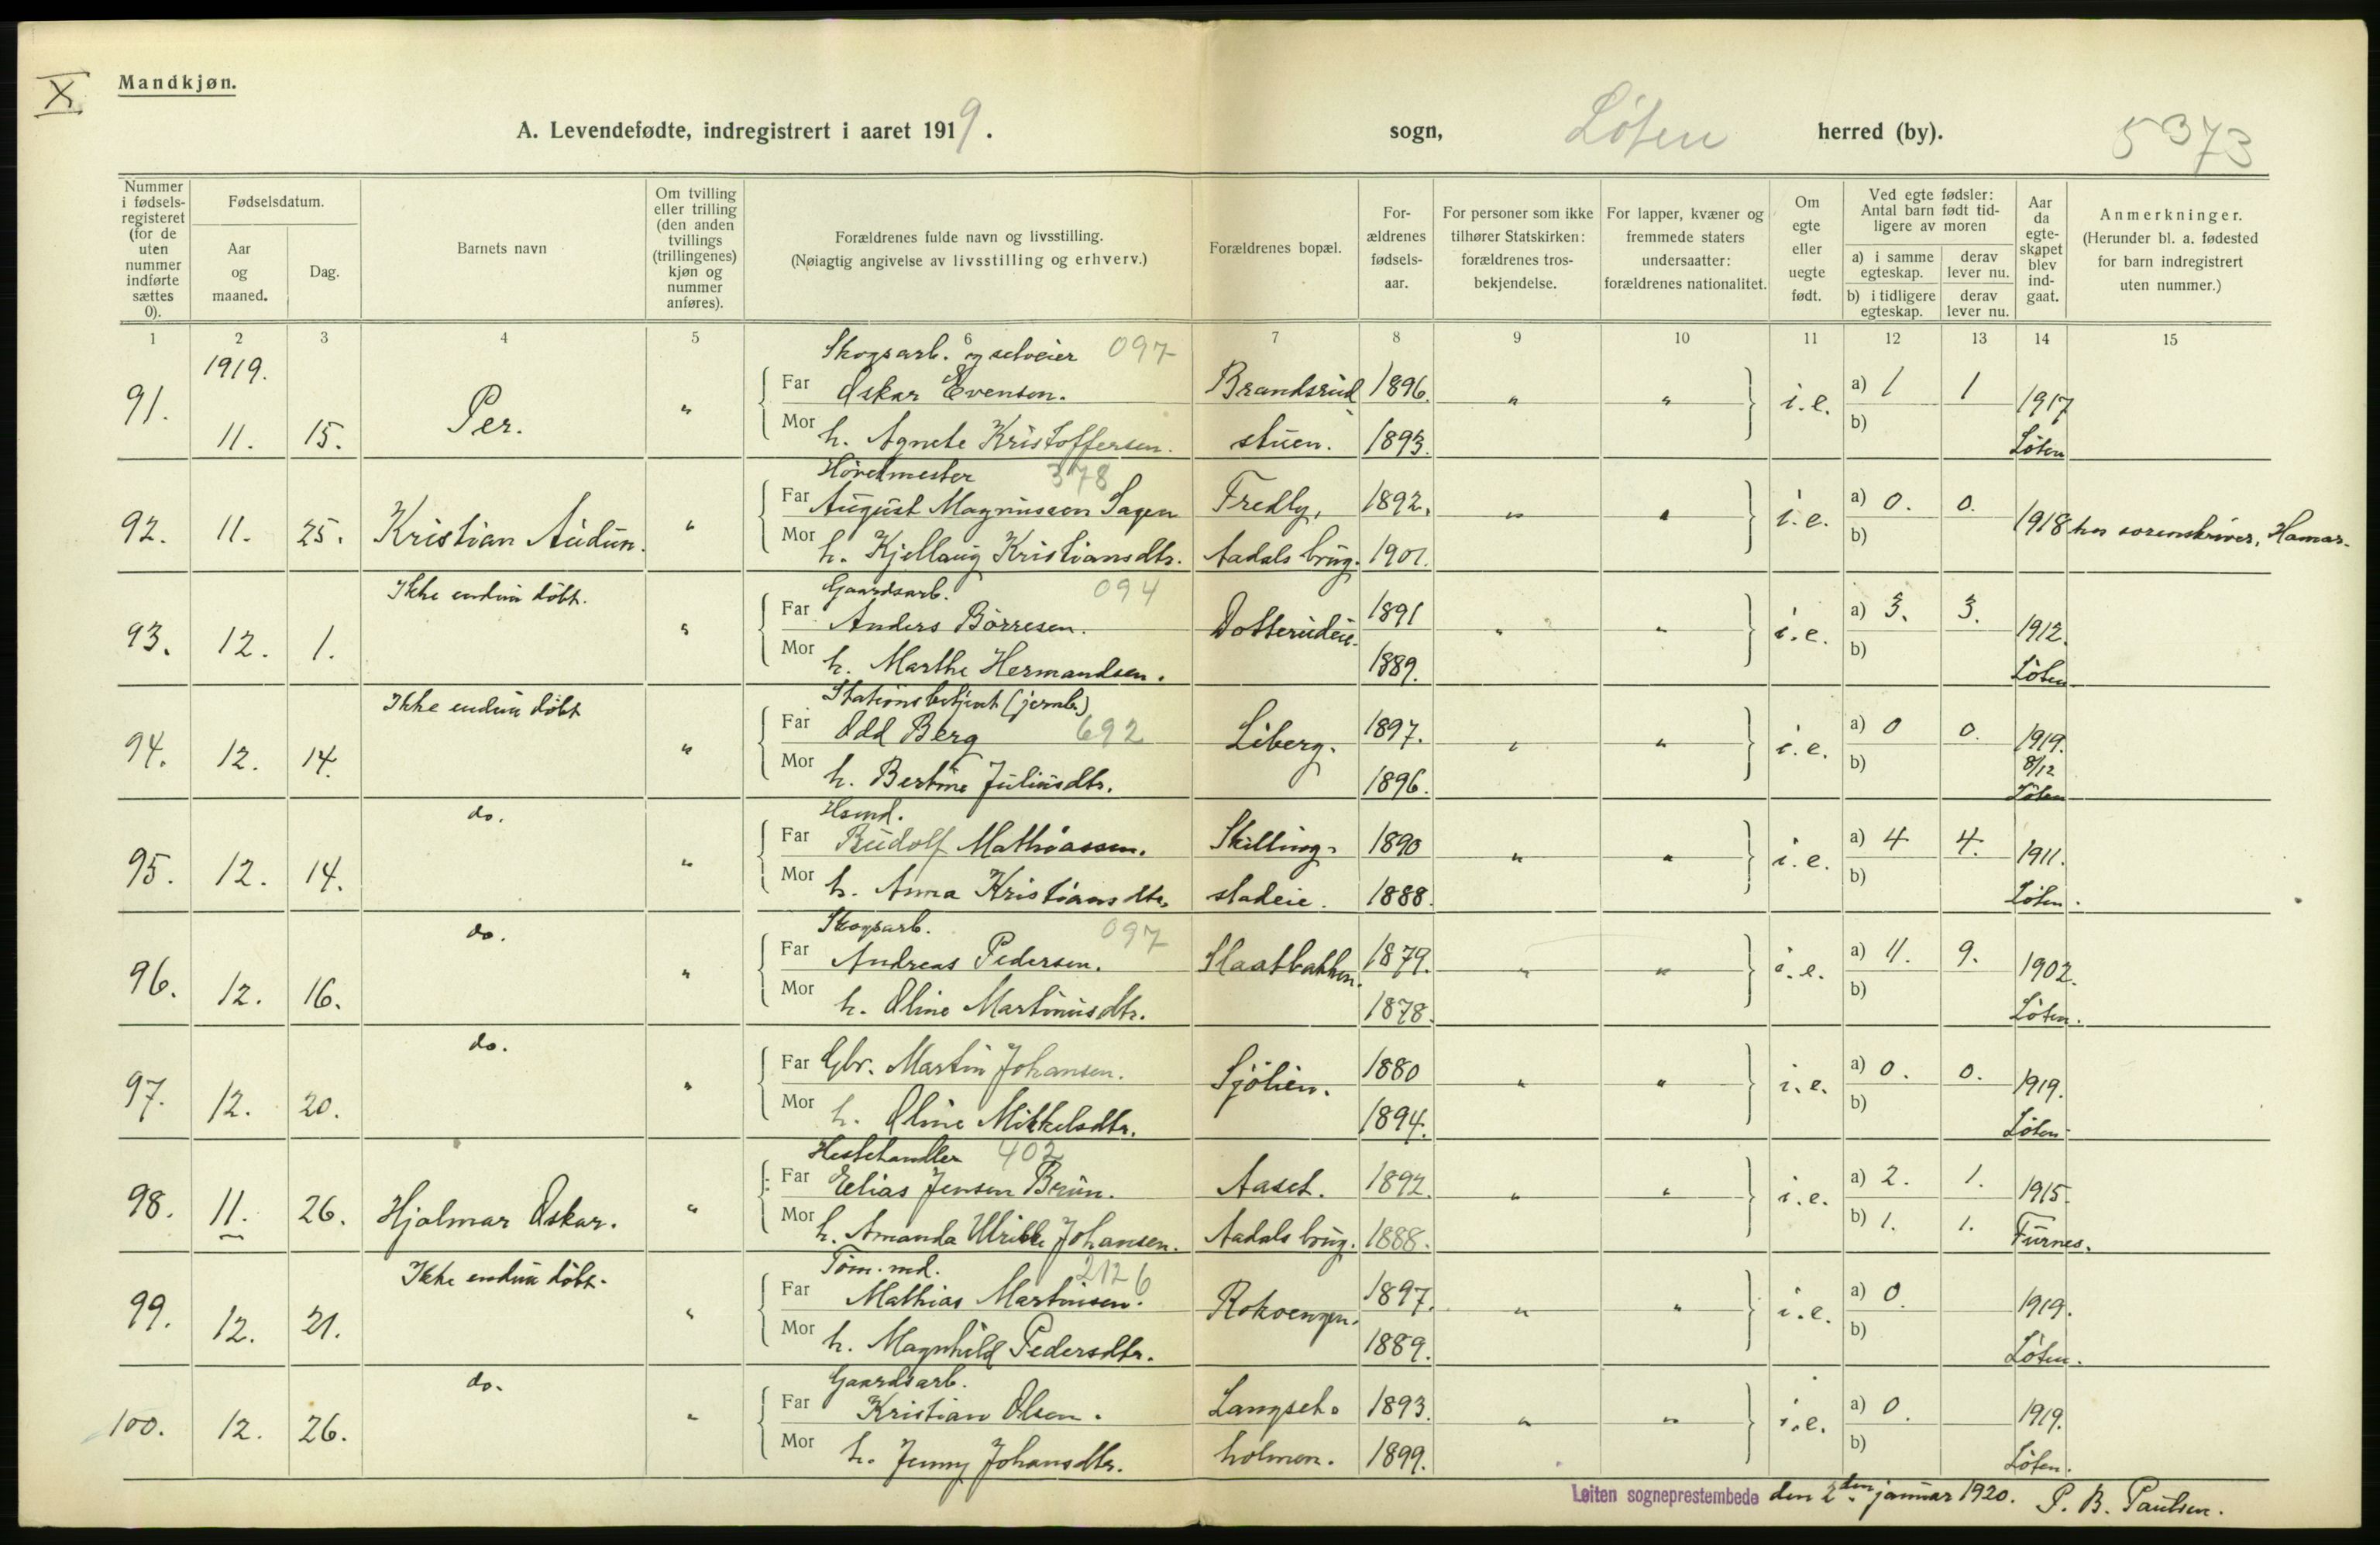 X
Mandkjøn.
A. Levendefødte, indregistrert i aaret 1919.
sogn, Löten herred (by).
5373
Nummer i fødselsregisteret (for de uten nummer indførte sættes 0).
Fødselsdatum.
Aar og maaned.
Dag.
Barnets navn
Om tvilling eller trilling (den anden tvillings (trillingenes) kjøn og nummer anføres).
Forældrenes fulde navn og livsstilling.
(Nøiagtig angivelse av livsstilling og erhverv.)
Forældrenes bopæl.
Forældrenes fødselsaar.
For personer som ikke tilhører Statskirken: forældrenes trosbekjendelse.
For lapper, kvæner og fremmede staters undersaatter: forældrenes nationalitet.
Om egte eller uegte født.
Ved egte fødsler: Antal barn født tidligere av moren
a) i samme egteskap. derav lever nu.
b) i tidligere egteskap. derav lever nu.
Aar da egteskapet blev indgaat.
Anmerkninger.
(Herunder bl. a. fødested for barn indregistrert uten nummer.)
1 2 3 4 5 6 7 8 9 10 11 12 13 14 15
1919.
Skogsarb. og selveier 097
91. 11. 15. Per. " Far Oskar Evensen. Brandsrud 1896. " " i.e. a) 1 1 1917
Mor h. Agnete Kristoffersen. stuen. 1893. b) Löten
378
92. 11. 25. Kristian Audun. " Far August Magnussen Sagen Fredly, 1892. " " i.e. a) 0. 0. 1918 hos sorenskriver, Hamar.
Mor h. Kjellaug Kristiansdtr. Aadals brug. 1901. b)
Ikke endnu döbt. Gaardsarb. 094
93. 12. 1. " Far Anders Börresen. Dotterudeie. 1891 " " i.e. a) 3. 3. 1912.
Mor h. Marthe Hermandsen. 1889. b) Löten
Ikke endnu döbt Stationsbetjent (jernb.)
94. 12. 14. " Far Odd Berg 692 Liberg. 1897. " " i.e. a) 0 0. 1919. 8/12
Mor h. Bertine Juliusdtr. 1896. b) Löten
do. Hsmd.
95. 12. 14. " Far Rudolf Mathiassen. Skilling- 1890 " " i.e. a) 4 4. 1911.
Mor h. Anna Kristiansdtr. stadeie. 1888. b) Löten.
do. Skogsarb. 097
96. 12. 16. " Far Andreas Pedersen. Slaatbakken. 1879. " " i.e. a) 11. 9. 1902.
Mor h. Oline Martinusdtr. 1878. b) Löten.
do.
97. 12. 20. " Far Gbr. Martin Johansen. Sjölien. 1880 " " i.e. a) 0. 0. 1919.
Mor h. Oline Mikkelsdtr. 1894. b) Löten
Hestehandler 402
98. 11. 26. Hjalmar Oskar. " Far Elias Jensen Brun. Aaset. 1892. " " i.e. a) 2. 1. 1915.
Mor h. Amanda Ulrikke Johansen. Aadals brug. 1888. b) 1. 1. Furnes.
Ikke endnu döbt. Töm.md. 2126
99. 12. 21. " Far Mathias Martinsen. Rokvengen. 1897. " " i.e. a) 0. 1919.
Mor h. Magnhild Pedersdtr. 1889. b) Löten.
do. Gaardsarb.
100. 12. 26. " Far Kristian Olsen. Langset- 1893. " " i.e. a) 0. 1919.
Mor h. Jenny Johansdtr. holmen. 1899. b) Löten.
Løiten sogneprestembede den 2den januar 1920. P. B. Paulsen.